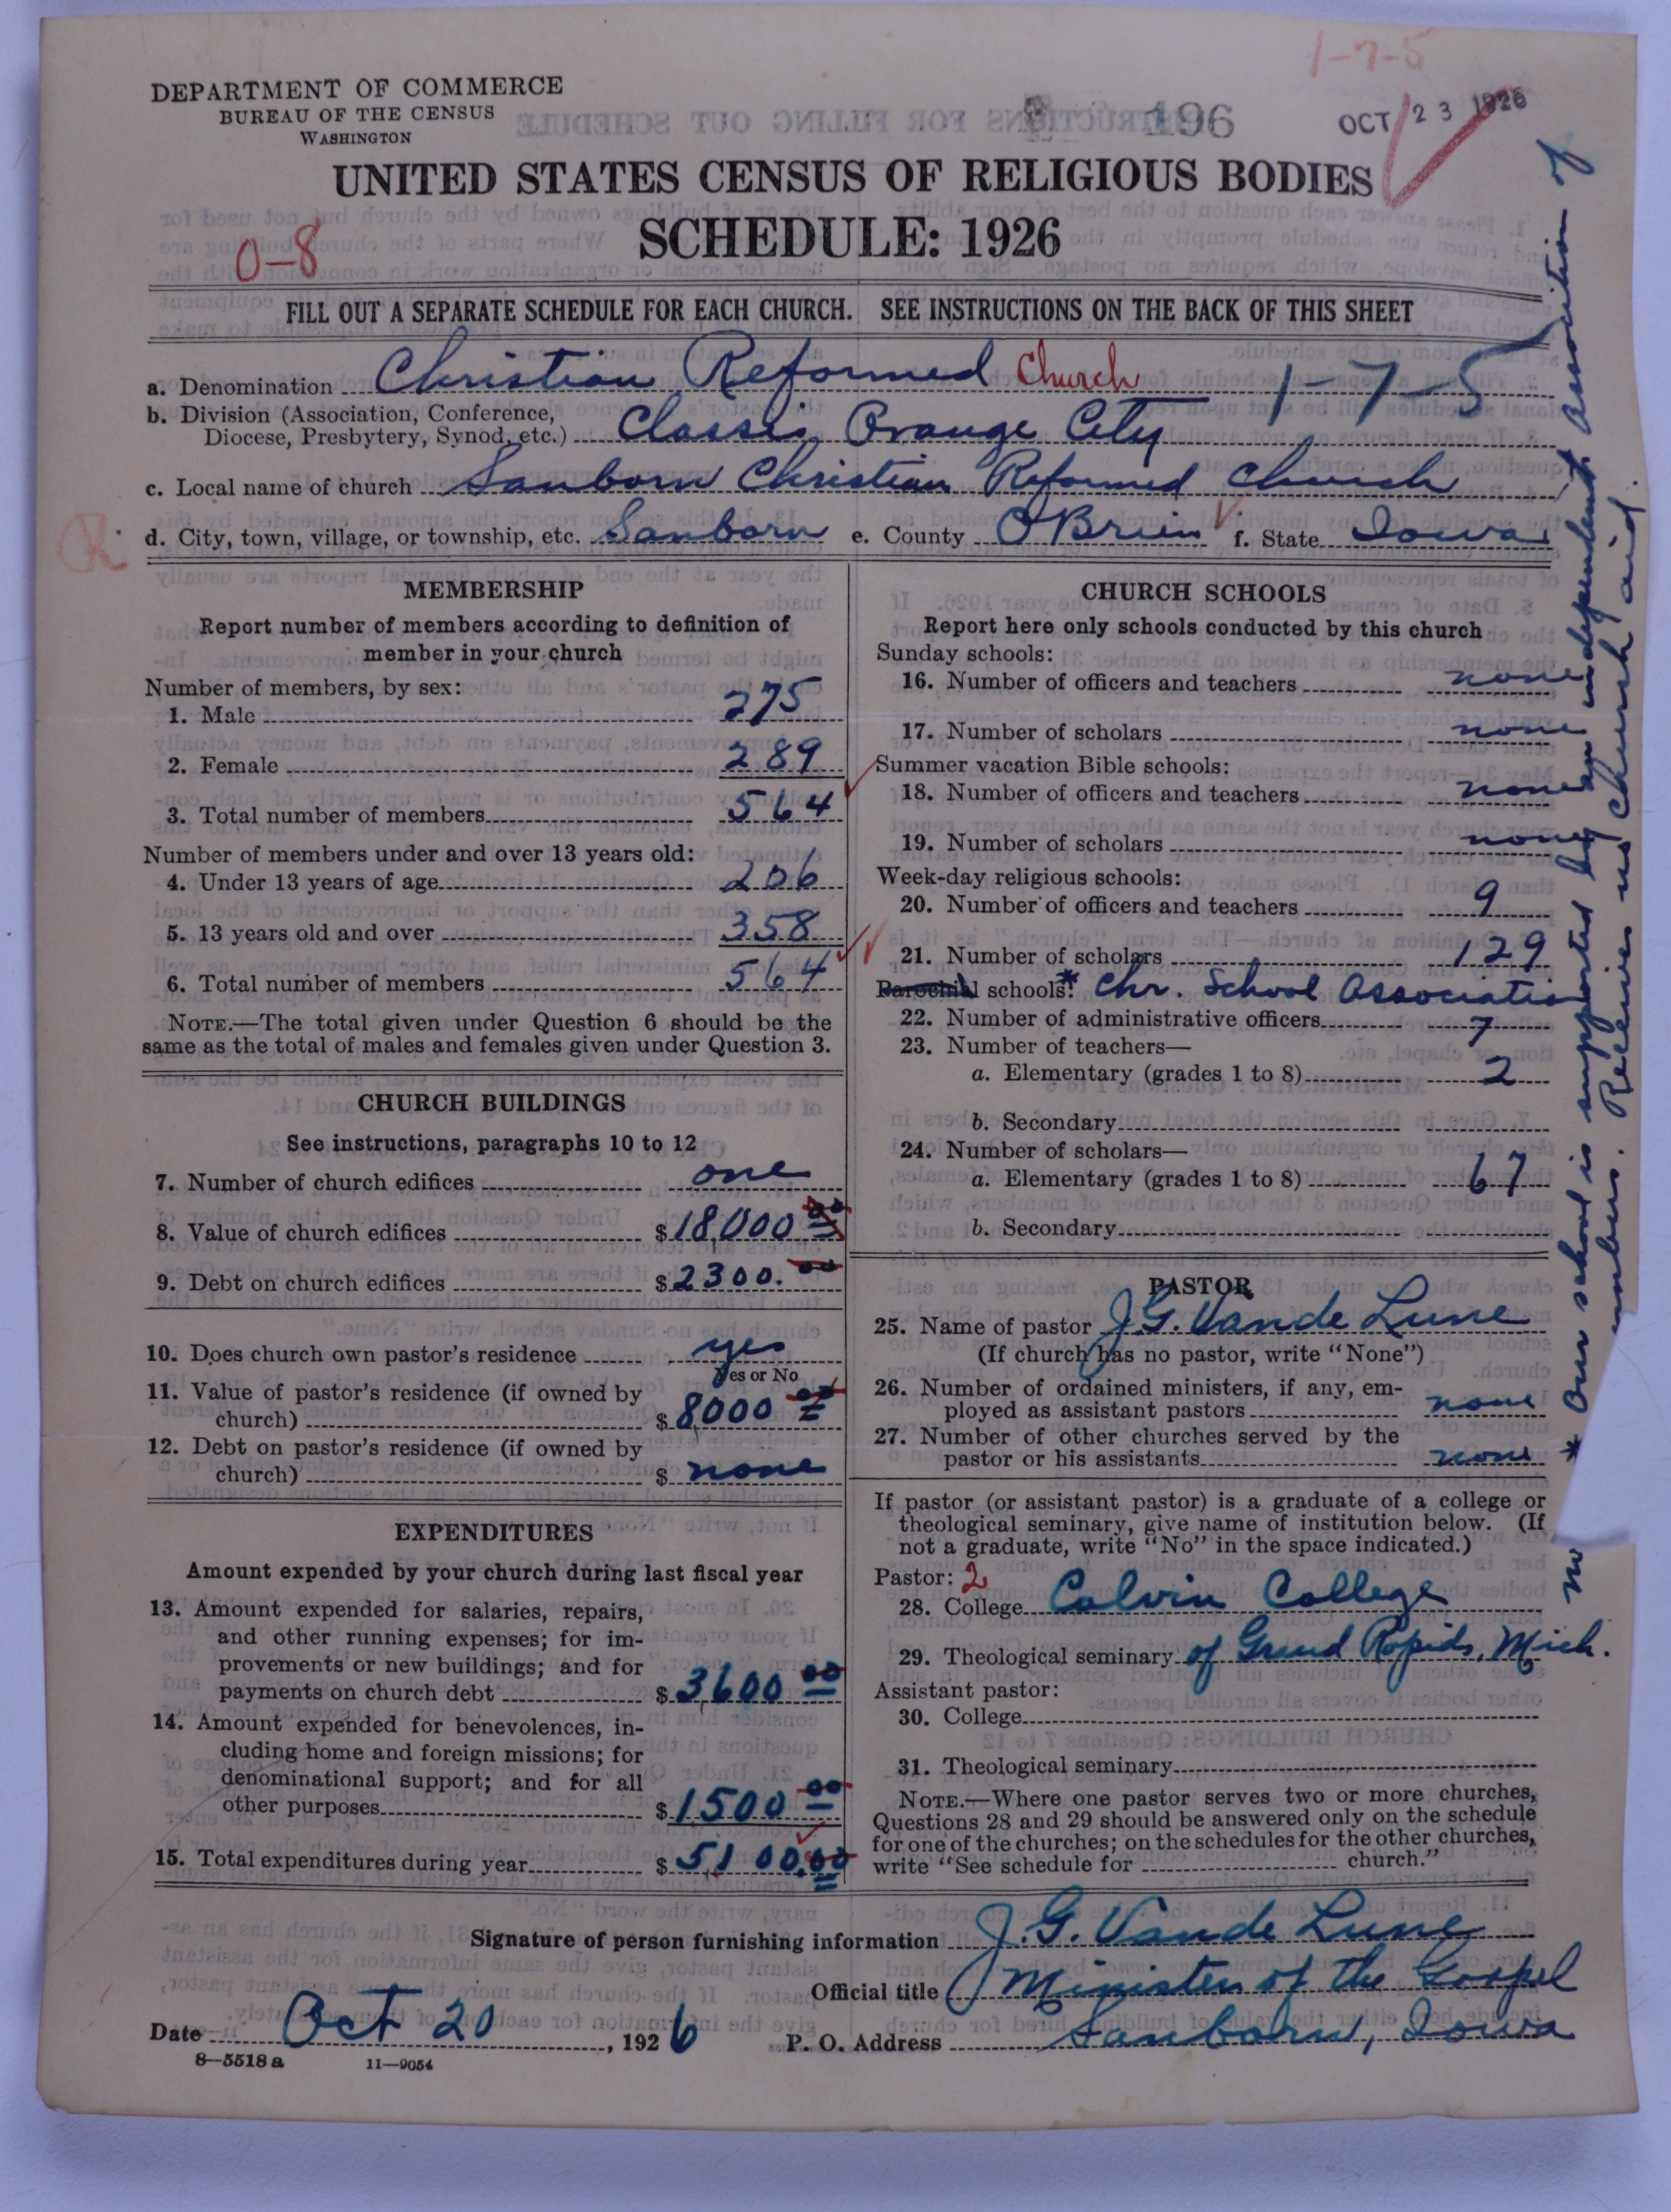 1-7-5
DEPARTMENT OF COMMERCE
BUREAU OF THE CENSUS
WASHINGTON
196
OCT 23 1926
UNITED STATES CENSUS OF RELIGIOUS BODIES
SCHEDULE: 1926
0-8
FILL OUT A SEPARATE SCHEDULE FOR EACH CHURCH. SEE INSTRUCTIONS ON THE BACK OF THIS SHEET
a. Denomination Christian Reformed Church 1-7-5
b. Division (Association, Conference,
Diocese, Presbytery, Synod, etc.) Classis Orange City
c. Local name of church Sanborn Christian Reformed Church
R
d. City, town, village, or township, etc. Sanborn e. County O'Brien f. State Iowa
MEMBERSHIP
Report number of members according to definition of
member in your church
Number of members, by sex:
1. Male 275
2. Female 289
3. Total number of members 564
Number of members under and over 13 years old:
4. Under 13 years of age 206
5. 13 years old and over 358
6. Total number of members 564
NOTE.—The total given under Question 6 should be the
same as the total of males and females given under Question 3.
CHURCH BUILDINGS
See instructions, paragraphs 10 to 12
7. Number of church edifices one
8. Value of church edifices $18,000 00
9. Debt on church edifices $2300. 00
10. Does church own pastor's residence yes
Yes or No
11. Value of pastor's residence (if owned by
church) $8000 00
12. Debt on pastor's residence (if owned by
church) $ none
EXPENDITURES
Amount expended by your church during last fiscal year
13. Amount expended for salaries, repairs,
and other running expenses; for im-
provements or new buildings; and for
payments on church debt $3,600 00
14. Amount expended for benevolences, in-
cluding home and foreign missions; for
denominational support; and for all
other purposes $1500 00
15. Total expenditures during year $5,100.00
CHURCH SCHOOLS
Report here only schools conducted by this church
Sunday schools:
16. Number of officers and teachers none
17. Number of scholars none
Summer vacation Bible schools:
18. Number of officers and teachers none
19. Number of scholars none
Week-day religious schools:
20. Number of officers and teachers 9
21. Number of scholars 129
Parochial schools:* Chr. School Association
22. Number of administrative officers 7
23. Number of teachers—
a. Elementary (grades 1 to 8) 2
b. Secondary
24. Number of scholars—
a. Elementary (grades 1 to 8) 67
b. Secondary
PASTOR
25. Name of pastor J.G. Vande Lune
(If church has no pastor, write "None")
26. Number of ordained ministers, if any, em-
ployed as assistant pastors none
27. Number of other churches served by the
pastor or his assistants none
If pastor (or assistant pastor) is a graduate of a college or
theological seminary, give name of institution below. (If
not a graduate, write "No" in the space indicated.)
Pastor: 2
28. College Calvin College
29. Theological seminary of Grand Rapids, Mich.
Assistant pastor:
30. College
31. Theological seminary
NOTE.—Where one pastor serves two or more churches,
Questions 28 and 29 should be answered only on the schedule
for one of the churches; on the schedules for the other churches,
write "See schedule for church."
* Our school is supported by an independent Association of
members. Receives no church aid.
Signature of person furnishing information J.G. Vande Lune
Official title Minister of the Gospel
Date Oct 20, 1926 P. O. Address Sanborn, Iowa
8—5518 a 11—9054